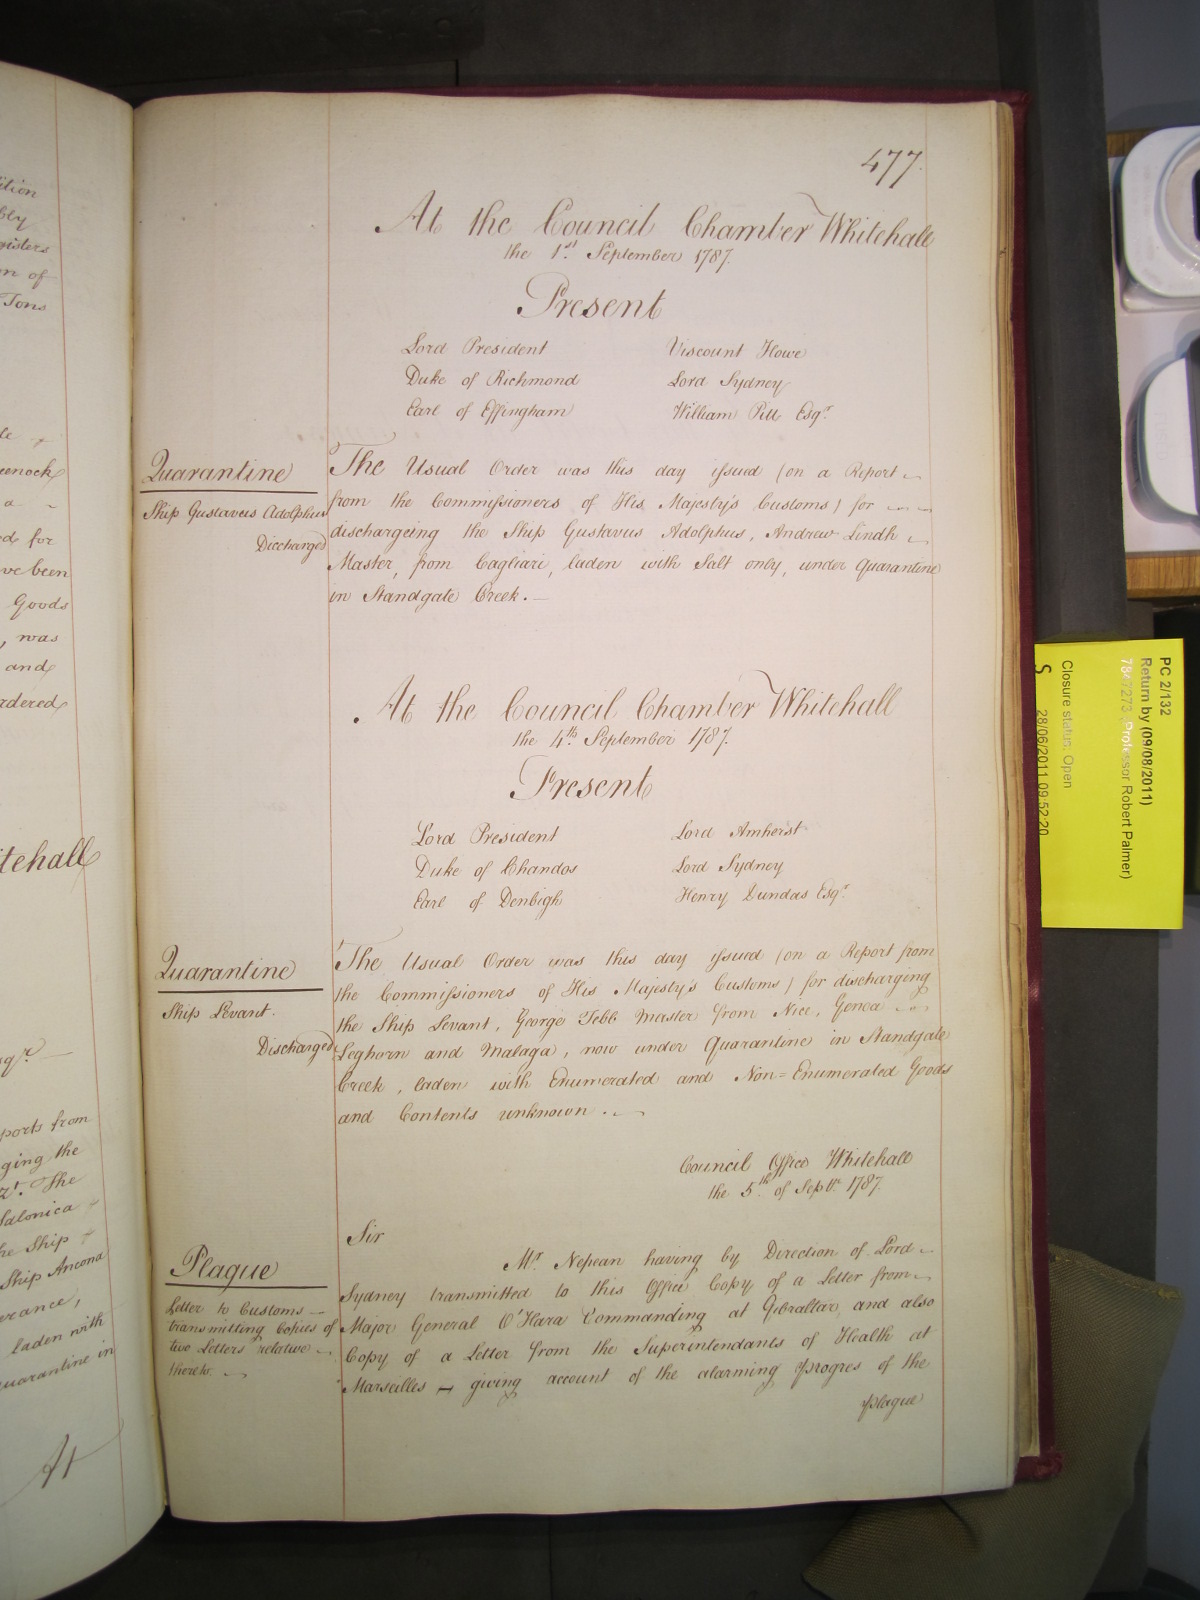 477.
At the Council Chamber Whitehall
the 1st September 1787.
Present
Lord President
Duke of Richmond
Earl of Effingham
Viscount Howe
Lord Sydney
William Pitt Esqr.
Quarantine
Ship Gustavus Adolphus
Discharged
The Usual Order was this day issued (on a Report
from the Commissioners of His Majesty's Customs) for
dischargeing the Ship Gustavus Adolphus, Andrew Lindh
Master, from Cagliari, laden with Salt only, under Quarantine
in Standgate Creek.
At the Council Chamber Whitehall
the 4th September 1787.
Present
Lord President
Duke of Chandos
Earl of Denbigh
Lord Amherst
Lord Sydney
Henry Dundas Esqr.
Quarantine
Ship Levant.
Discharged
The Usual Order was this day issued (on a Report from
the Commissioners of His Majesty's Customs) for discharging
the Ship Levant, George Tebb Master from Nice, Genoa
Leghorn and Malaga, now under Quarantine in Standgate
Creek, laden with Enumerated and Non=Enumerated Goods
and Contents unknown.
Council Office Whitehall
the 5th of Septr. 1787.
Sir
Plague
Letter to Customs
transmitting Copies of
two Letters relative
thereto.
Mr. Nepean having by Direction of Lord
Sydney transmitted to this Office Copy of a Letter from
Major General O'Hara Commanding at Gibraltar, and also
Copy of a Letter from the Superintendants of Health at
Marseilles giving account of the alarming progres of the
plague
itehall
and
rdered
, was
Goods
ve been
d for
a
eenock
Tons
n of
gisters
bly
ition
ports from
ging the
The
Salonica
he Ship
Ship Ancona
erance,
laden with
uarantine in
At
PC 2/132
Return by (09/08/2011)
Professor Robert Palmer)
Closure status: Open
S
28/06/2011 09:52:20